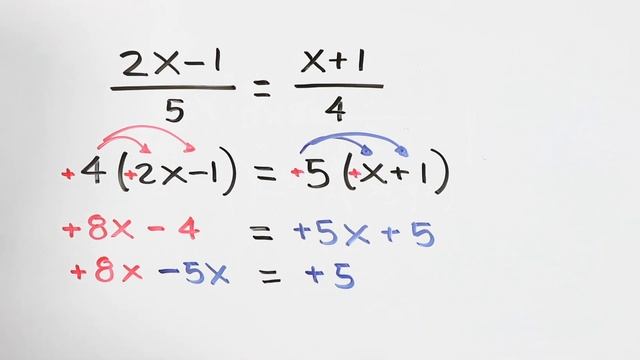 2x-1/5 = x+1/4
+4(+2x-1) = +5(+x+1)
+8x-4 = +5x+5
+8x-5x = +5